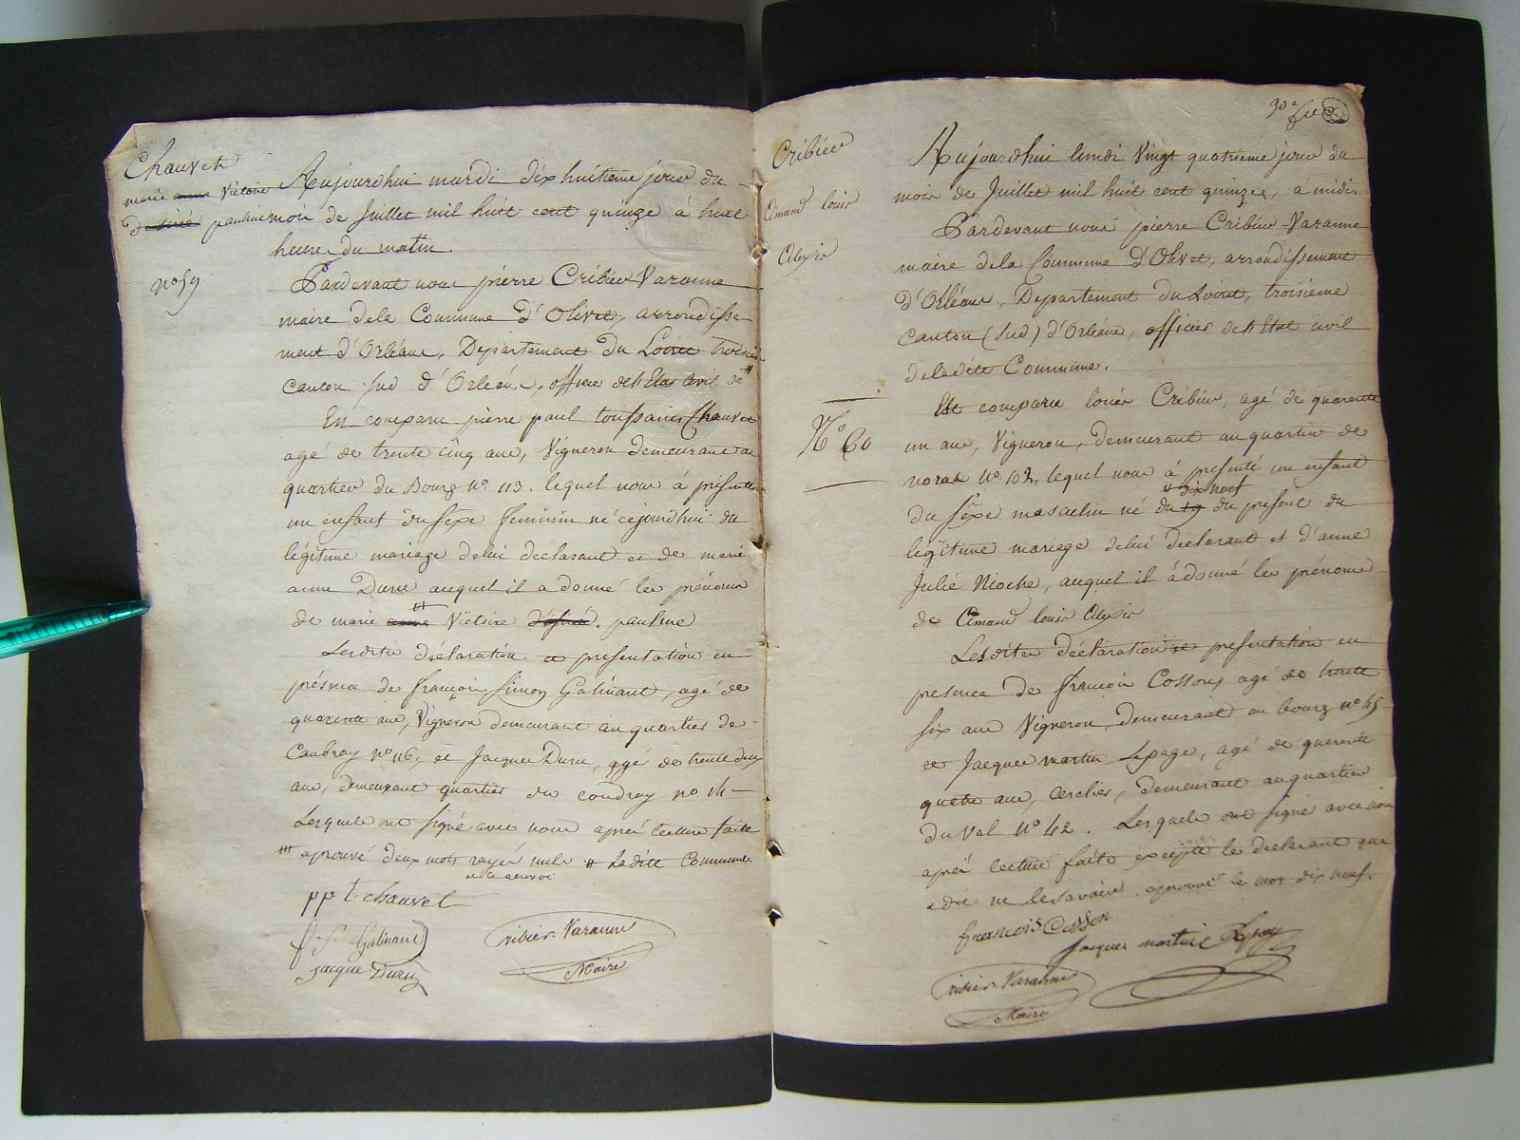 Chauvet
marie anne Victoire
désiré pauline
n° 59
Aujourdhui mardi dix huitieme jour du
mois de Juillet mil huit cent quinze à huit
heures du matin.
Pardevant nous pierre Cribier Varanne
maire dela Commune d'Olivet, arrondisse
ment d'Orléans, Departement du Loiret troisieme
canton sud d'Orléans, officier de l'Etat Civil de #
Est comparu pierre paul toussaint Chauvet
agé de trente cinq ans, Vigneron demeurant au
quartier du Bourg n° 113. lequel nous à présenté
un enfant du sexe feminin né cejourdhui du
légitime mariage delui declarant et de marie
anne Duru auquel il a donné les prénoms
de marie anne Victoire désiré. pauline
Lesdites déclaration et presentation en
présence de françois Simon Galinant, agé de
quarente ans, Vigneron demeurant au quartier de
Caubray n° 116, et Jacques Duru, agé de trente deux
ans, demeurant quartier du coudray n° 114
Lesquels ont signé avec nous aprés lecture faite
aprouvé deux mots rayés nuls # Ladite Commune
et le renvoi
ppt chauvet
f. S. Galinant
Jacque Duru
Cribier-Varanne
Maire
30e
Cribier
Amand louis
Alexis
N° 60
Aujourdhui lundi Vingt quatrieme jour du
mois de Juillet mil huit cent quinze, a midi
Pardevant nous pierre Cribier-Varanne
maire dela Commune d'Olivet, arrondissement
d'Orléans, Departement du Loiret, troisieme
Canton (Sud) d'Orléans, officier de l'Etat civil
deladite Commune.
Est comparu louis Cribier, agé de quarente
un ans, Vigneron, demeurant au quartier de
noras n° 102, lequel nous à presenté un enfant
dix neuf
du sexe masculin né du 19 du present du
legitime mariage delui declarant et d'anne
Julie Nioche, auquel il à donné les prénoms
de Amand louis Alexis
Lesdites déclaration et presentation en
presence de francois Cosson agé de trente
six ans Vigneron, demeurant au bourg n° 45
et Jacques martin Lepage, agé de quarente
quatre ans, cerclier, demeurant au quartier
du Val N° 42. Lesquels ont signé avec nous
aprés lecture faite excepté le declarant qui
a dit ne le savoir. aprouvé le mot dix neuf.
francois Cosson
Jacques martin Lepage
Cribier-Varanne
Maire